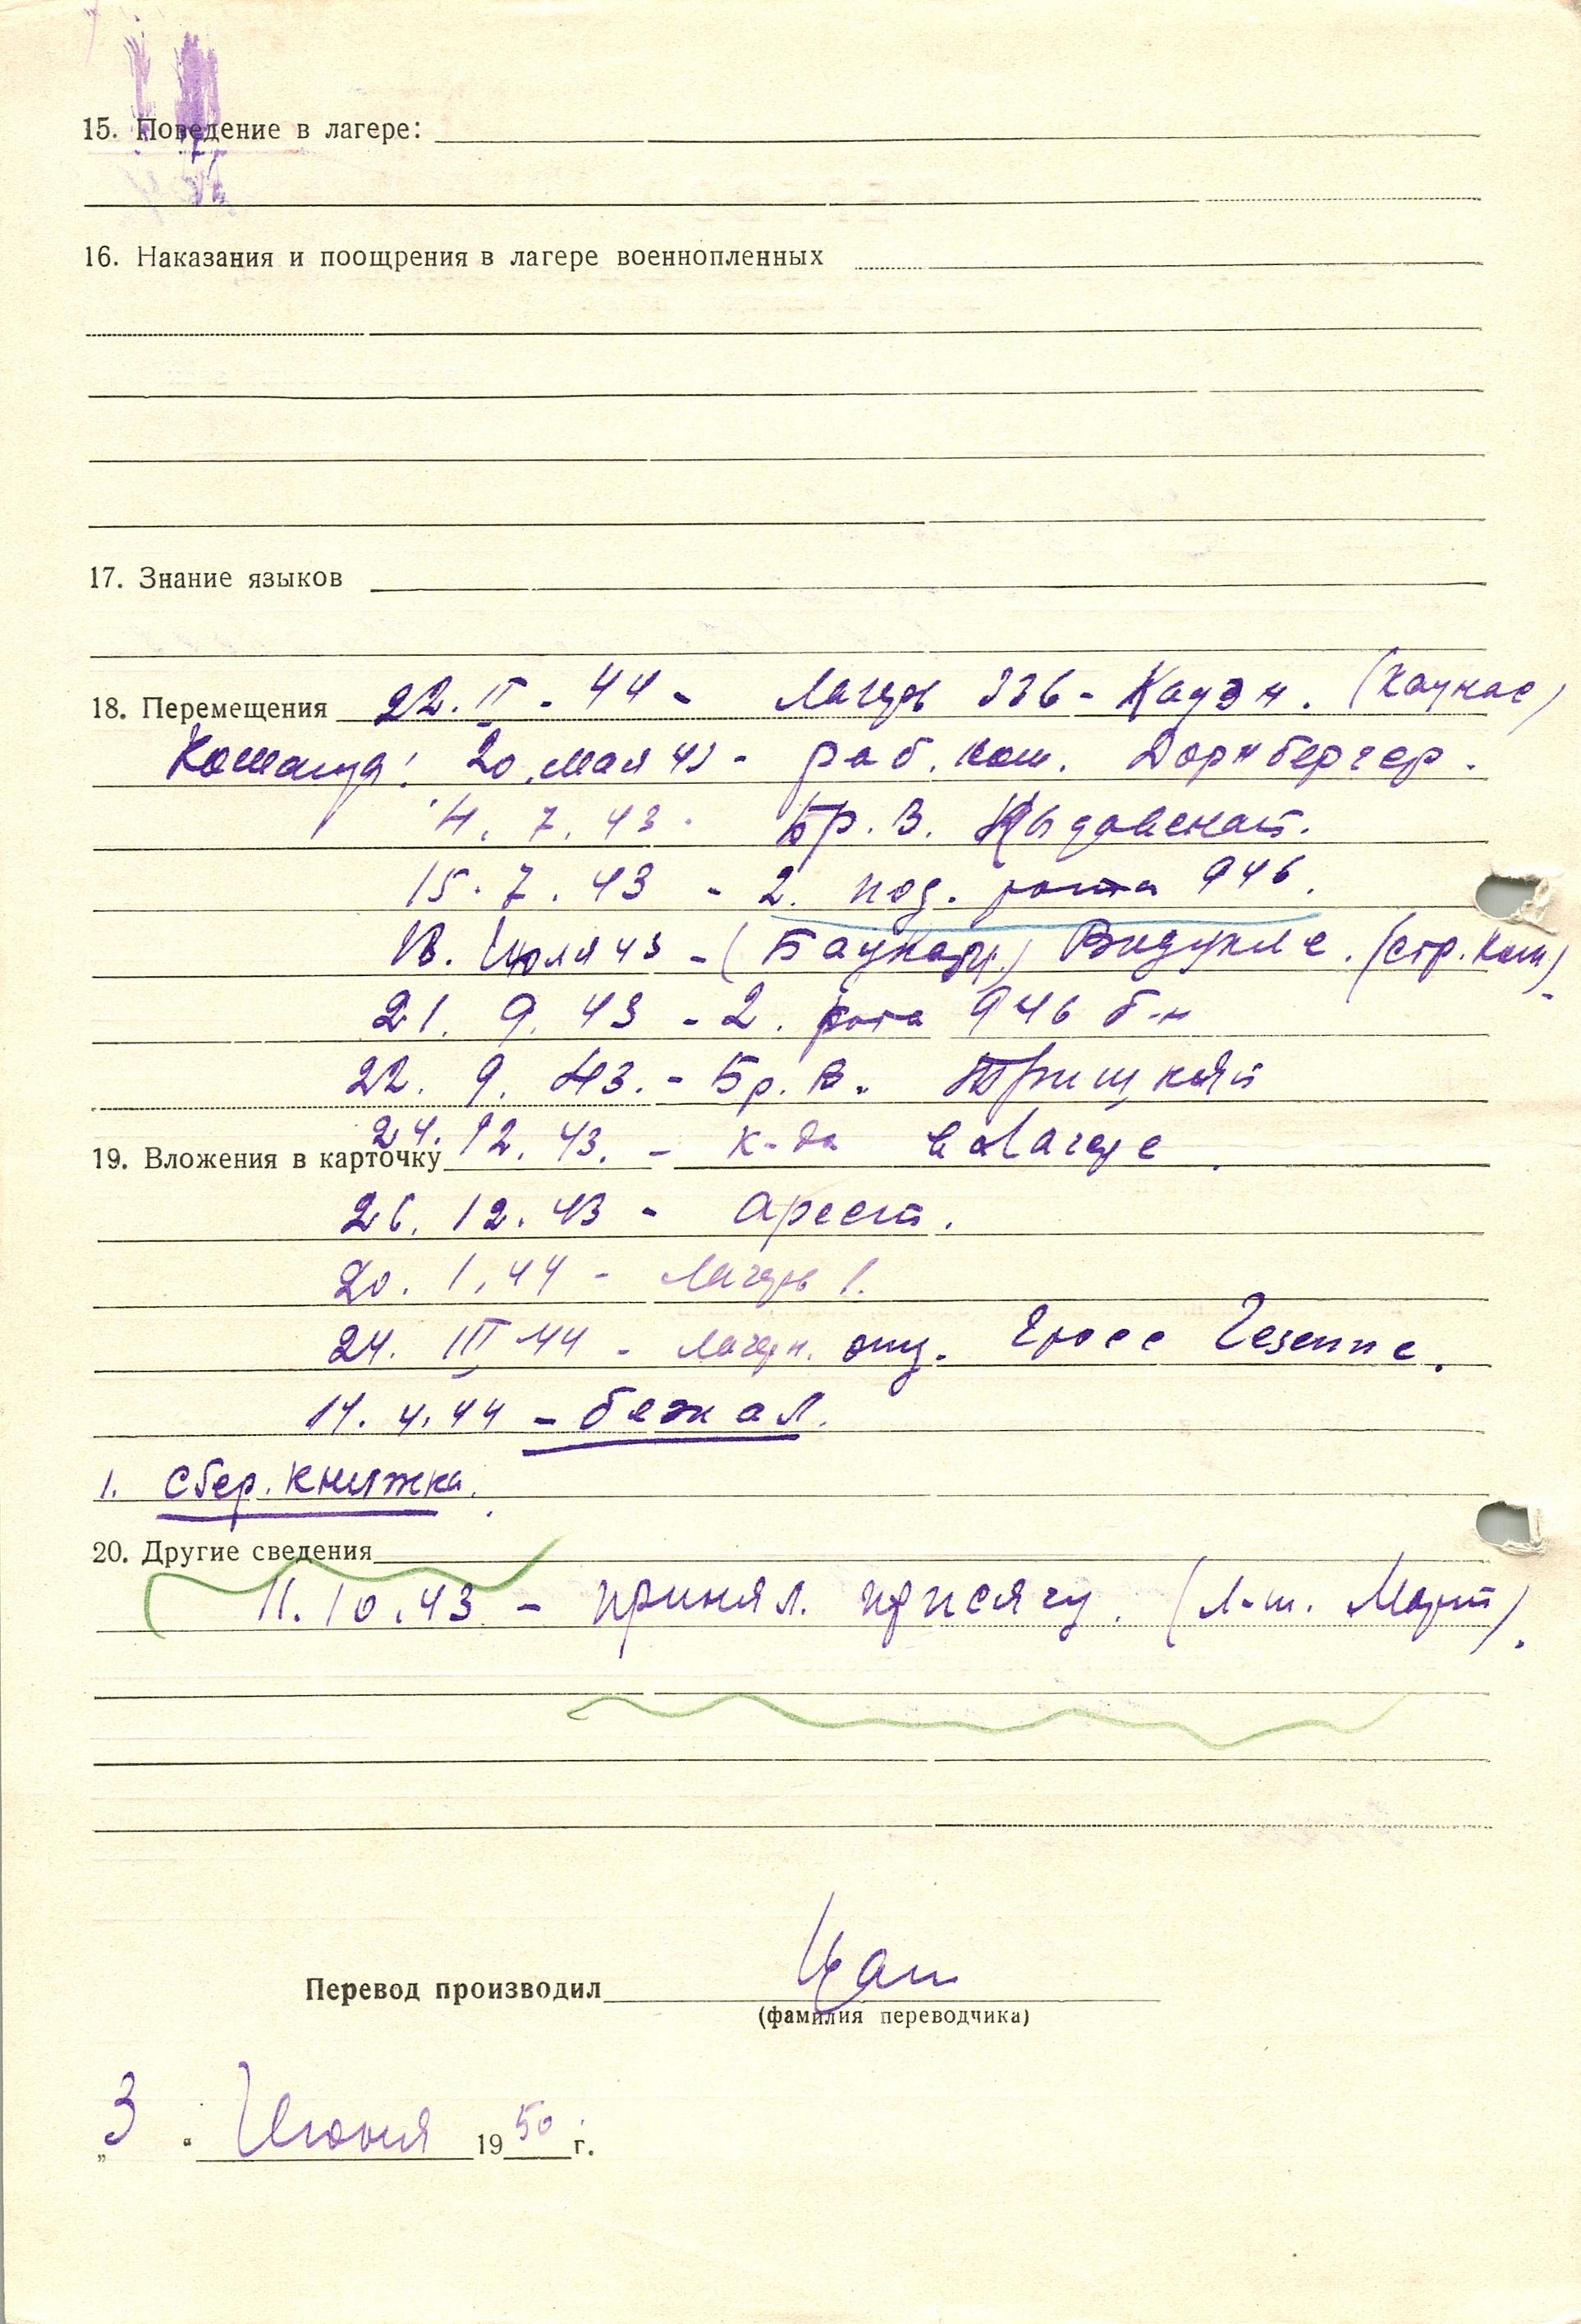 15. Поведение в лагере:
16. Наказания и поощрения в лагере военнопленных
17. Знание языков
18. Перемещения 22. II - 44 - Лагерь 336 - Кауэн. (Каунас)
20 мая 43 - раб. ком. Дорнбергер.
4. 7. 43 - Бр. В.
15. 7. 43 - 2. под. рота 946.
18. Июля 43 - Видукле. (стр. ком)
21. 9. 43 - 2. рота 946 б-н
22. 9. 43. - Бр. В.
24. 12. 43. - к-да в лагере
19. Вложения в карточку
26. 12. 43 - арест.
20. 1. 44 - Лагерь 1.
24. III 44 - лагерн. отд. Гросс
14. 4. 44 - бежал.
1. Сбер. книжка.
20. Другие сведения
11. 10. 43 - принял присягу. (л-т.
Перевод производил
(фамилия переводчика)
„3 “ Июня 1950 г.